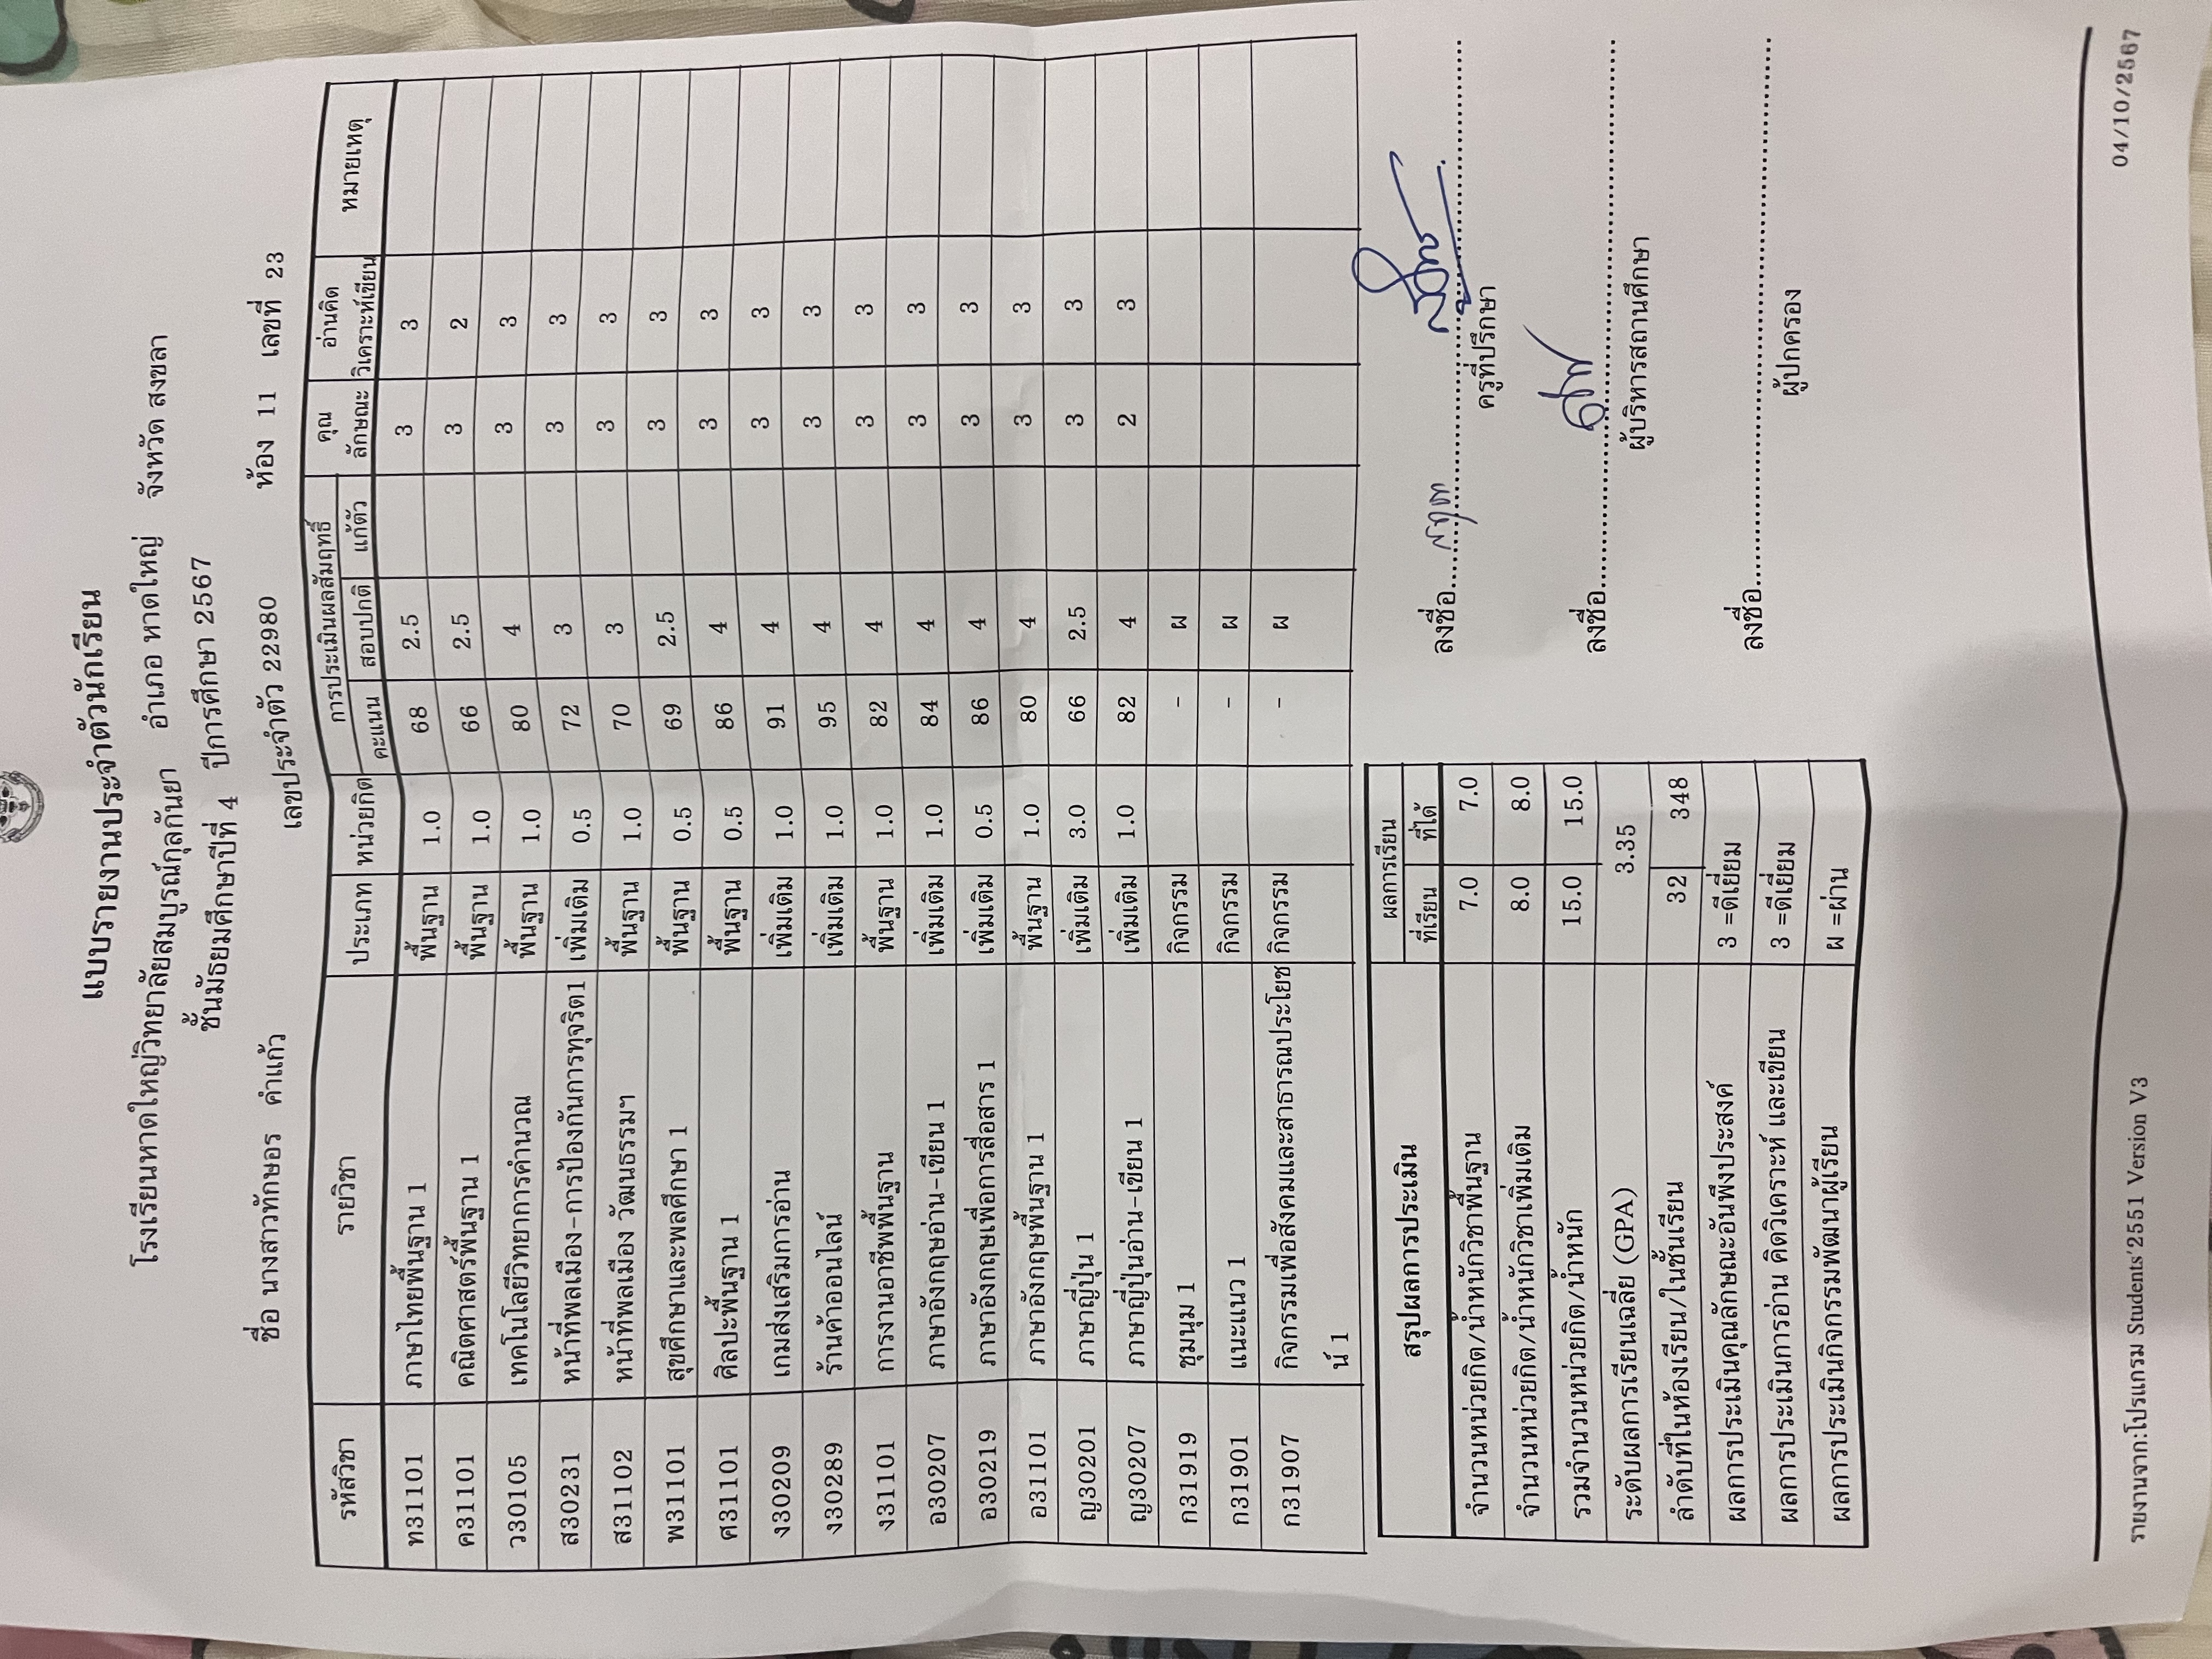 แบบรายงานประจำตัวนักเรียน
โรงเรียนหาดใหญ่วิทยาลัยสมบูรณ์กุลกันยา อำเภอ หาดใหญ่ จังหวัด สงขลา
ชั้นมัธยมศึกษาปีที่ 4 ปีการศึกษา 2567
ชื่อ นางสาวทักษอร คำแก้ว เลขประจำตัว 22980 ห้อง 11 เลขที่ 23
รหัสวิชา รายวิชา ประเภท หน่วยกิต การประเมินผลสัมฤทธิ์ คุณลักษณะ อ่านคิดวิเคราะห์เขียน หมายเหตุ
คะแนน สอบปกติ แก้ตัว
ท31101 ภาษาไทยพื้นฐาน 1 พื้นฐาน 1.0 68 2.5 3 3
ค31101 คณิตศาสตร์พื้นฐาน 1 พื้นฐาน 1.0 66 2.5 3 2
ว30105 เทคโนโลยีวิทยาการคำนวณ พื้นฐาน 1.0 80 4 3 3
ส30231 หน้าที่พลเมือง-การป้องกันการทุจริต1 เพิ่มเติม 0.5 72 3 3 3
ส31102 หน้าที่พลเมือง วัฒนธรรมฯ พื้นฐาน 1.0 70 3 3 3
พ31101 สุขศึกษาและพลศึกษา 1 พื้นฐาน 0.5 69 2.5 3 3
ศ31101 ศิลปะพื้นฐาน 1 พื้นฐาน 0.5 86 4 3 3
ง30209 เกมส่งเสริมการอ่าน เพิ่มเติม 1.0 91 4 3 3
ง30289 ร้านค้าออนไลน์ เพิ่มเติม 1.0 95 4 3 3
ง31101 การงานอาชีพพื้นฐาน พื้นฐาน 1.0 82 4 3 3
อ30207 ภาษาอังกฤษอ่าน-เขียน 1 เพิ่มเติม 1.0 84 4 3 3
อ30219 ภาษาอังกฤษเพื่อการสื่อสาร 1 เพิ่มเติม 0.5 86 4 3 3
อ31101 ภาษาอังกฤษพื้นฐาน 1 พื้นฐาน 1.0 80 4 3 3
ญ30201 ภาษาญี่ปุ่น 1 เพิ่มเติม 3.0 66 2.5 3 3
ญ30207 ภาษาญี่ปุ่นอ่าน-เขียน 1 เพิ่มเติม 1.0 82 4 2 3
ก31919 ชุมนุม 1 กิจกรรม - ผ
ก31901 แนะแนว 1 กิจกรรม - ผ
ก31907 กิจกรรมเพื่อสังคมและสาธารณประโยช กิจกรรม - ผ
น์ 1
สรุปผลการประเมิน ผลการเรียน
ที่เรียน ที่ได้
จำนวนหน่วยกิต/น้ำหนักวิชาพื้นฐาน 7.0 7.0
จำนวนหน่วยกิต/น้ำหนักวิชาเพิ่มเติม 8.0 8.0
รวมจำนวนหน่วยกิต/น้ำหนัก 15.0 15.0
ระดับผลการเรียนเฉลี่ย (GPA) 3.35
ลำดับที่ในห้องเรียน/ในชั้นเรียน 32 348
ผลการประเมินคุณลักษณะอันพึงประสงค์ 3 =ดีเยี่ยม
ผลการประเมินการอ่าน คิดวิเคราะห์ และเขียน 3 =ดีเยี่ยม
ผลการประเมินกิจกรรมพัฒนาผู้เรียน ผ =ผ่าน
ลงชื่อ
ครูที่ปรึกษา
ลงชื่อ
ผู้บริหารสถานศึกษา
ลงชื่อ
ผู้ปกครอง
รายงานจาก:โปรแกรม Students'2551 Version V3 04/10/2567